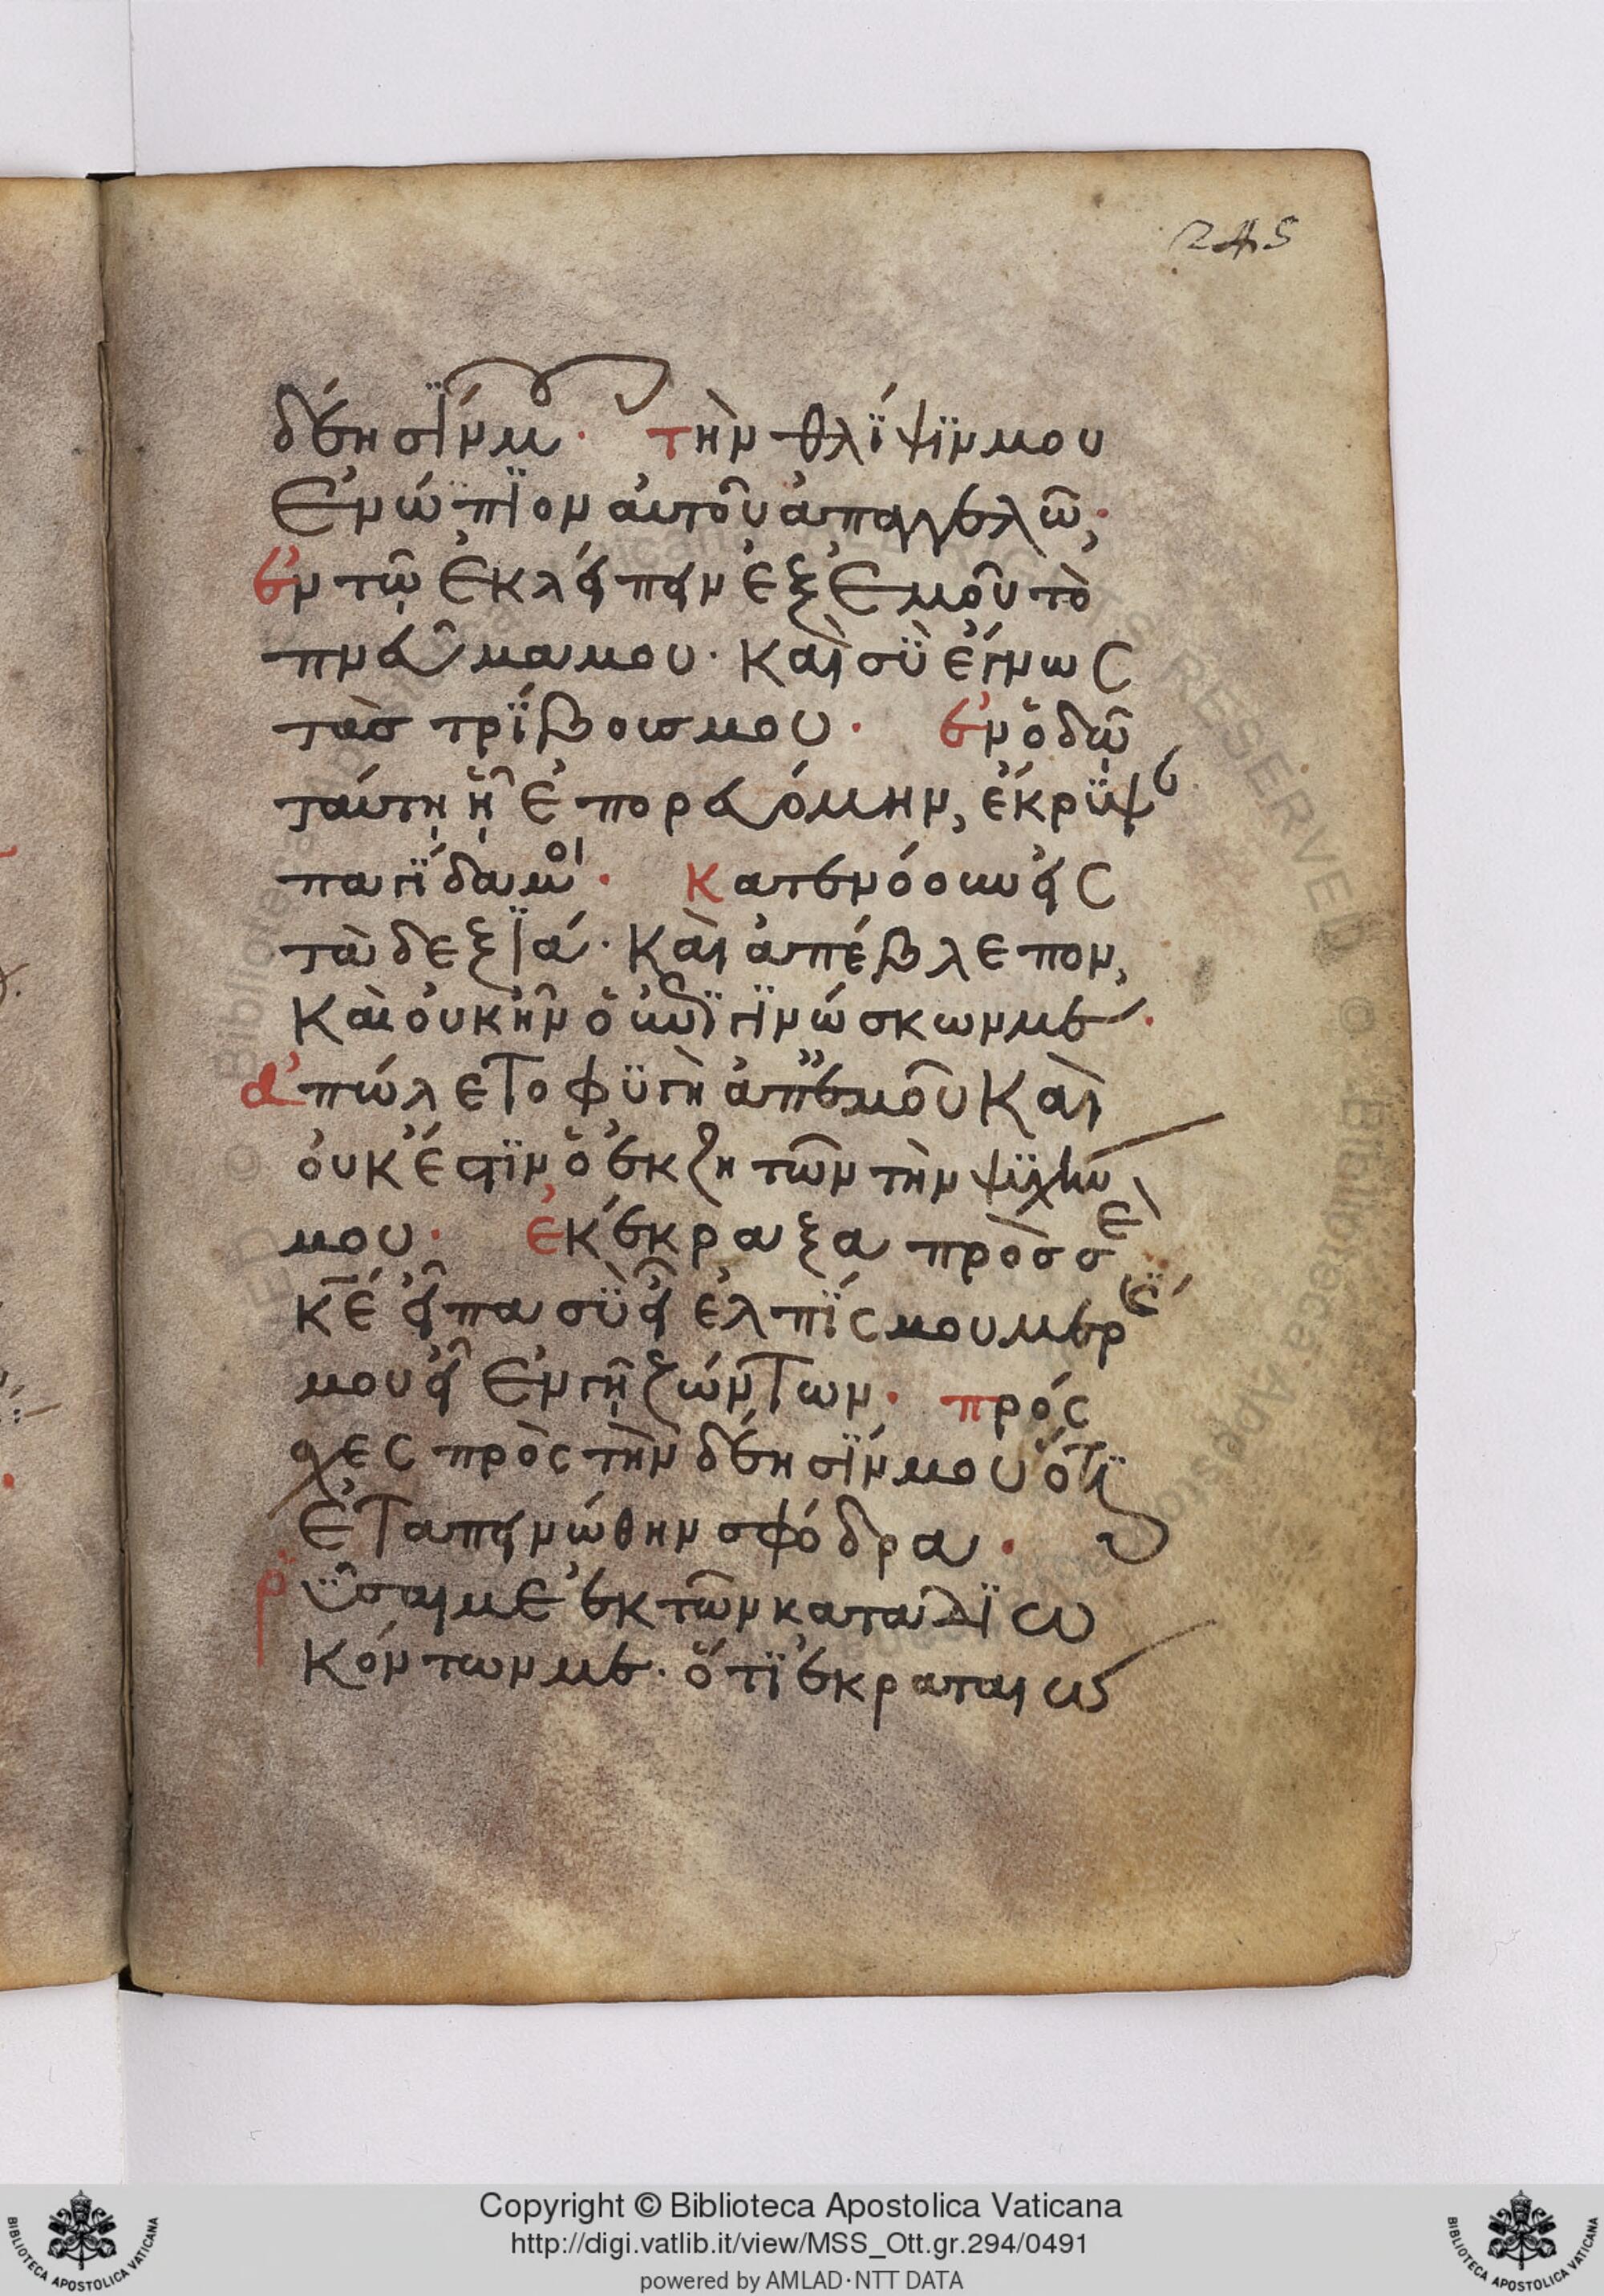 245
δέησίν μου· τὴν θλίψιν μου
ἐνώπιον αὐτοῦ ἀπαγγελῶ,·
ἐν τῷ ἐκλείπειν ἐξ ἐμοῦ τὸ
πνεῦμα μου· Καὶ σὺ ἔγνως
τὰς τρίβους μου· ἐν ὁδῷ
ταύτῃ ᾗ ἐπορευόμην, ἔκρυψε
παγίδα μοι· Κατενόουν εἰς
τὰ δεξιά· Καὶ ἀπέβλεπον,
Καὶ οὐκ ἦν ὁ ἐπιγινώσκων με·
ἀπώλετο φυγὴ ἀπ' ἐμοῦ Καὶ
οὐκ ἔστιν, ὁ ἐκζητῶν τὴν ψυχήν
μου· ἐκέκραξα πρὸς σὲ
κ̅ε̅ εἶπα σὺ εἶ ἐλπίς μου μερίς
μου εἶ ἐν γῇ ζώντων· πρός
χες πρὸς τὴν δέησίν μου ὅτι
ἐταπεινώθην σφόδρα·
ῥῦσαι με ἐκ τῶν καταδιω
κόντων με· ὅτι ἐκραταιώ
Copyright © Biblioteca Apostolica Vaticana
http://digi.vatlib.it/view/MSS_Ott.gr.294/0491
powered by AMLAD·NTT DATA
BIBLIOTECA APOSTOLICA VATICANA
BIBLIOTECA APOSTOLICA VATICANA